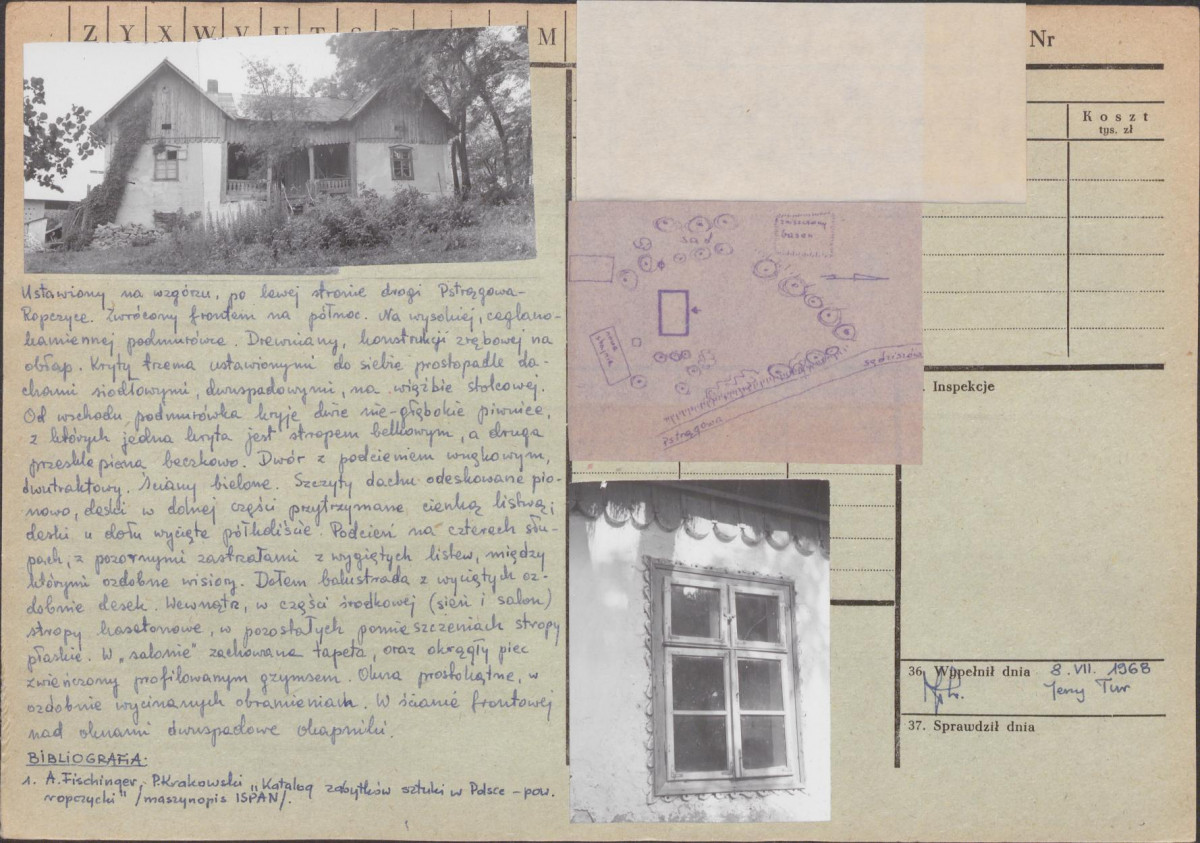 Z Y X W V U T S M
Nr
Koszt
tys. zł
Ustawiony na wzgórzu, po lewej stronie drogi Pstrągowa-
Ropczyce. Zwrócony frontem na północ. Na wysokiej, ceglano-
kamiennej podmurówce. Drewniany, konstrukcji zrębowej na
obłap. Kryty trzema ustawionymi do siebie prostopadle da-
chami siodłowymi, dwuspadowymi, na więźbie stolcowej.
Od wschodu podmurówka kryje dwie nie-głębokie piwnice,
z których jedna kryta jest stropem belkowym, a druga
przesklepiona beczkowo. Dwór z podcieniem wnękowym,
dwutraktowy. Ściany bielone. Szczyty dachu odeskowane pio-
nowo, deski w dolnej części przytrzymane cienką listwą i
deski u dołu wycięte półkoliście. Podcień na czterech słu-
pach, z pozornymi zastrzałami z wygiętych listew, między
którymi ozdobne wisiory. Dołem balustrada z wyciętych oz-
dobnie desek. Wewnątrz, w części środkowej (sień i salon)
stropy kasetonowe, w pozostałych pomieszczeniach stropy
płaskie. W „salonie" zachowana tapeta, oraz okrągły piec
zwieńczony profilowanym gzymsem. Okna prostokątne, w
ozdobnie wycinanych obramieniach. W ścianie frontowej
nad oknami dwuspadowe okapniki.
BIBLIOGRAFIA:
1. A. Fischinger, P. Krakowski „Katalog zabytków sztuki w Polsce – pow.
ropczycki" /maszynopis ISPAN/.
sad
basen
Pstrągowa
Inspekcje
36. Wypełnił dnia 8. VII. 1968
Jerzy Tur
37. Sprawdził dnia